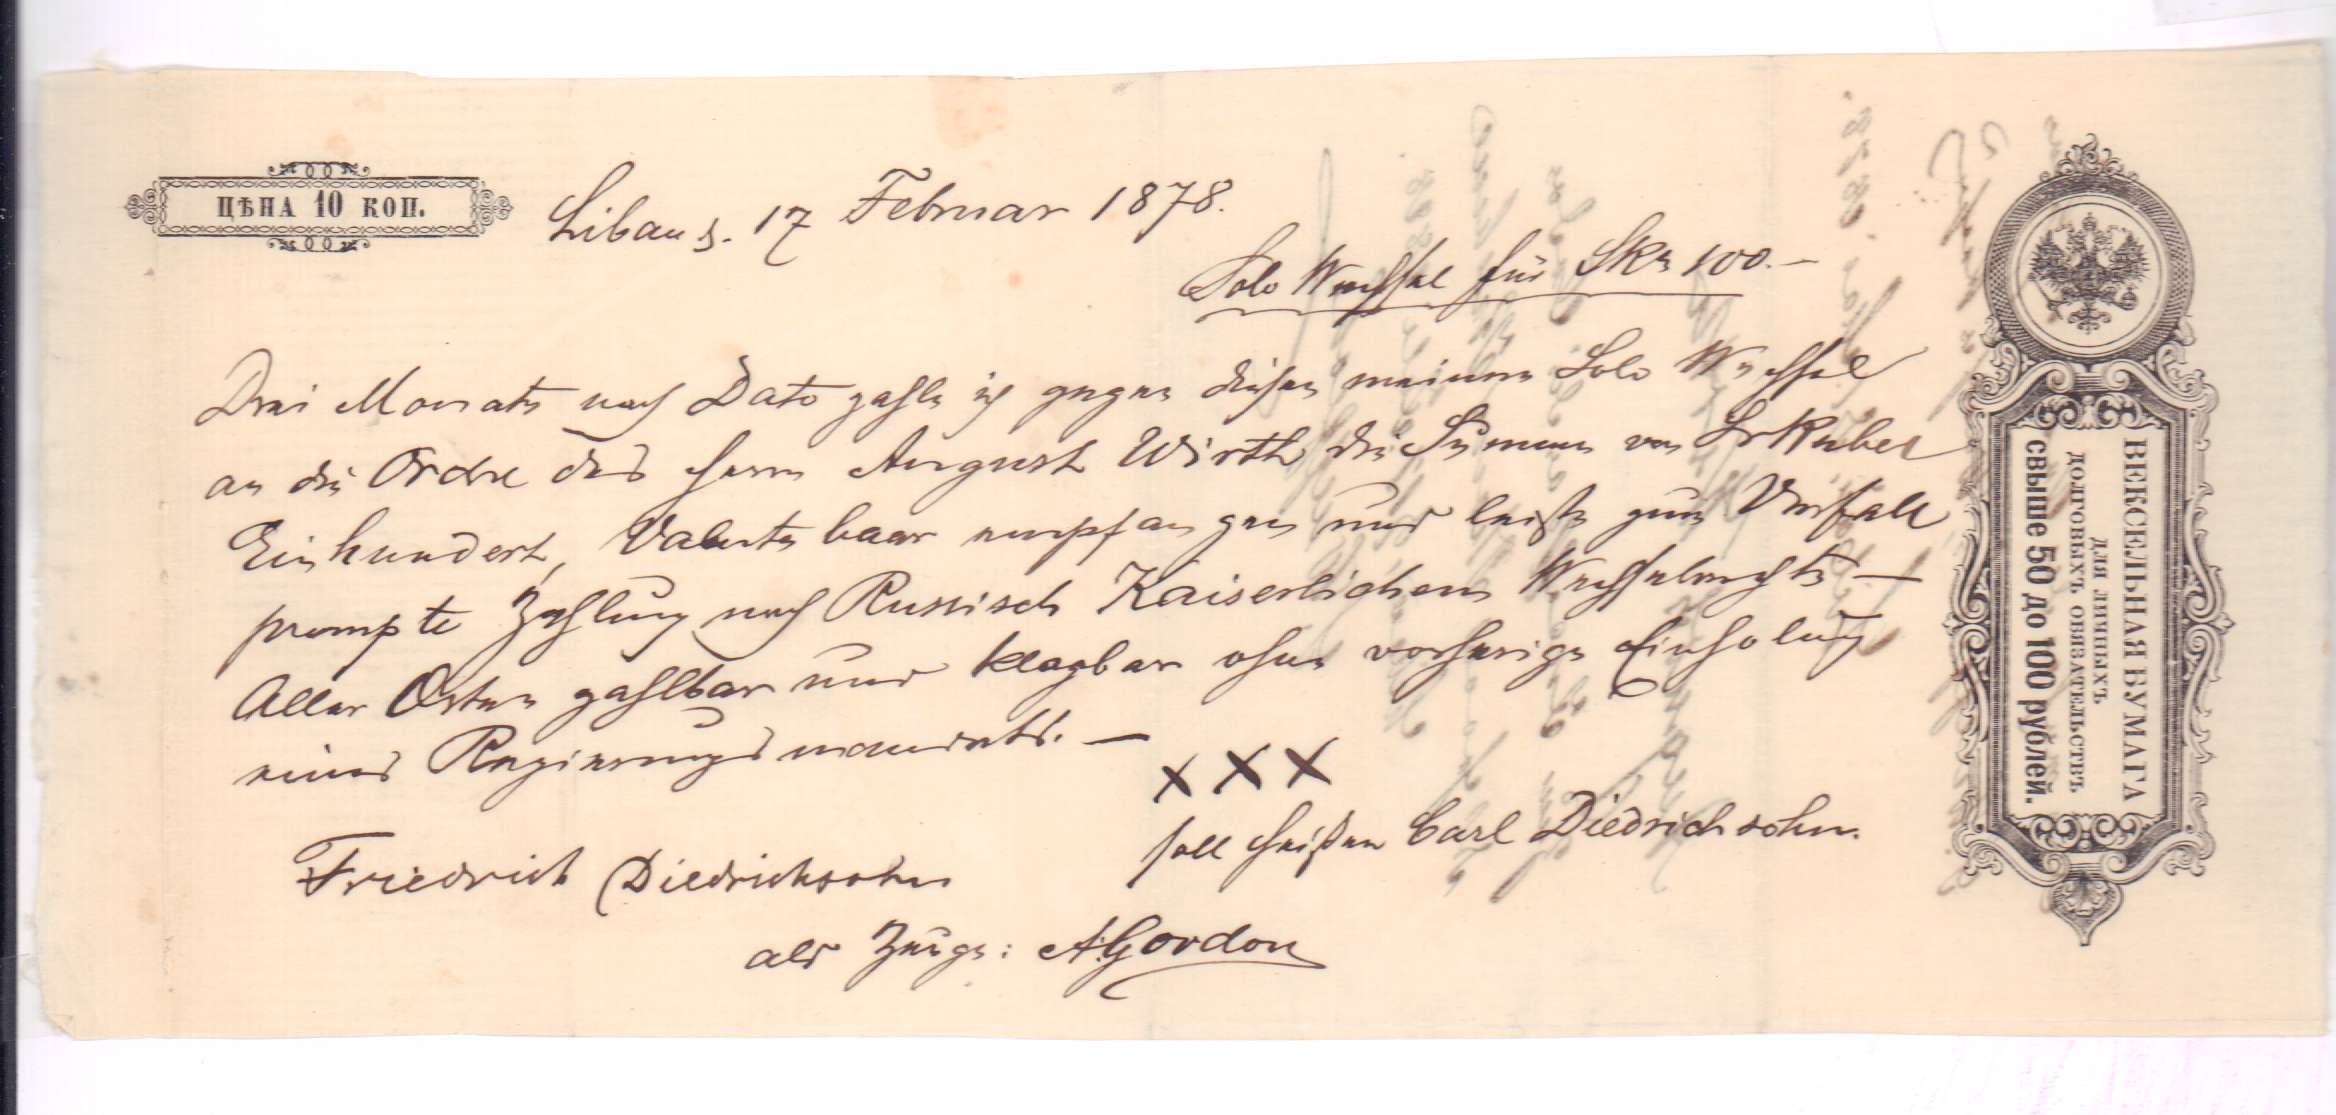 ЦѢНА 10 КОП.
Libau d. 17 Februar 1878.
Solo Wechsel für SRo 100.—
Drei Monate nach Dato zahle ich gegen diesen meinen Solo Wechsel
an die Ordre des Herrn August Wirth die Summe von Rubel
Einhundert, Valuta baar empfangen und leiste zum Verfall
prompte Zahlung nach Russisch Kaiserlichem Wechselrechte —
Aller Orten zahlbar und klagbar ohne vorherige Einholung
eines Regierungsmandats. —
X X X
soll heißen Carl Diedrichsohn.
Friedrich Diedrichsohn
als Zeuge: A. Gordon
ВЕКСЕЛЬНАЯ БУМАГА
ДЛЯ ЛИЧНЫХЪ
ДОЛГОВЫХЪ ОБЯЗАТЕЛЬСТВЪ
свыше 50 до 100 рублей.